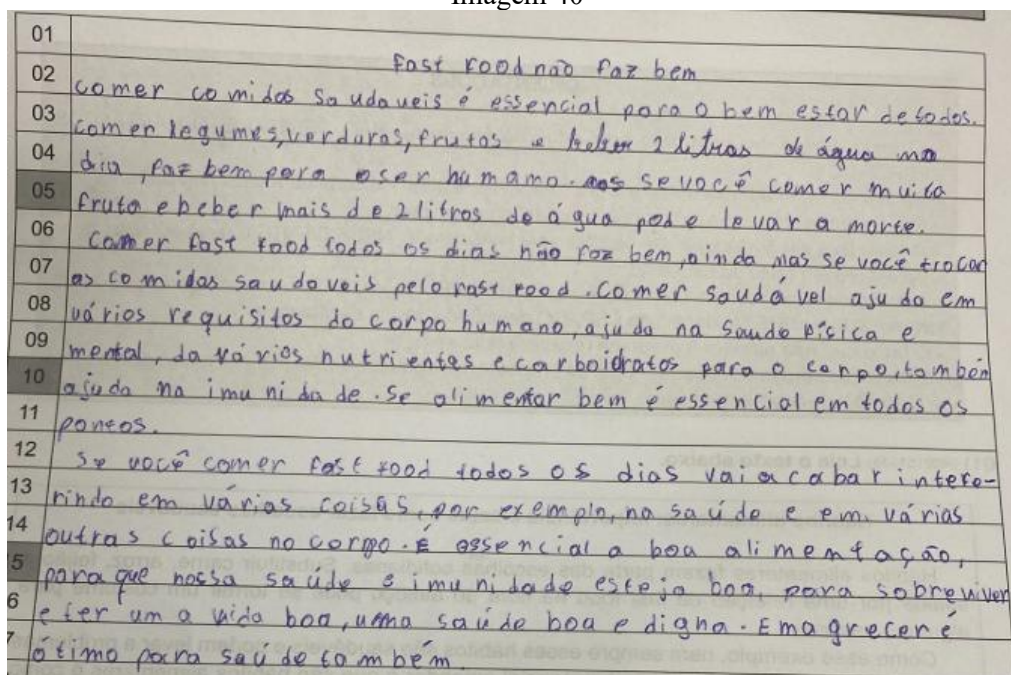 Imagem 40
01
Fast food não faz bem
02 comer comidas saudaveis é essencial para o bem estar de todos.
03 comer legumes, verduras, frutas e beber 2 litros de água no
04 dia, faz bem para o ser humamo. mas se você comer muita
05 fruta e beber mais de 2 litros de água pode levar a morte.
06 Comer fast food todos os dias não faz bem, ainda mas se você trocar
07 as comidas saudaveis pelo fast food. Comer saudável ajuda em
08 vários requisitos do corpo humano, ajuda na saude física e
09 mental, da vários nutrientes e carboidratos para o corpo, também
10 ajuda na imunidade. Se alimentar bem é essencial em todos os
11 pontos.
12 Se você comer fast food todos os dias vai acabar intefe-
13 rindo em várias coisas, por exemplo, na saúde e em várias
14 outras coisas no corpo. É essencial a boa alimentação,
5 para que nossa saúde e imunidade esteja boa, para sobreviver
6 e ter uma vida boa, uma saúde boa e digna. Emagrecer é
7 otimo para saúde também.